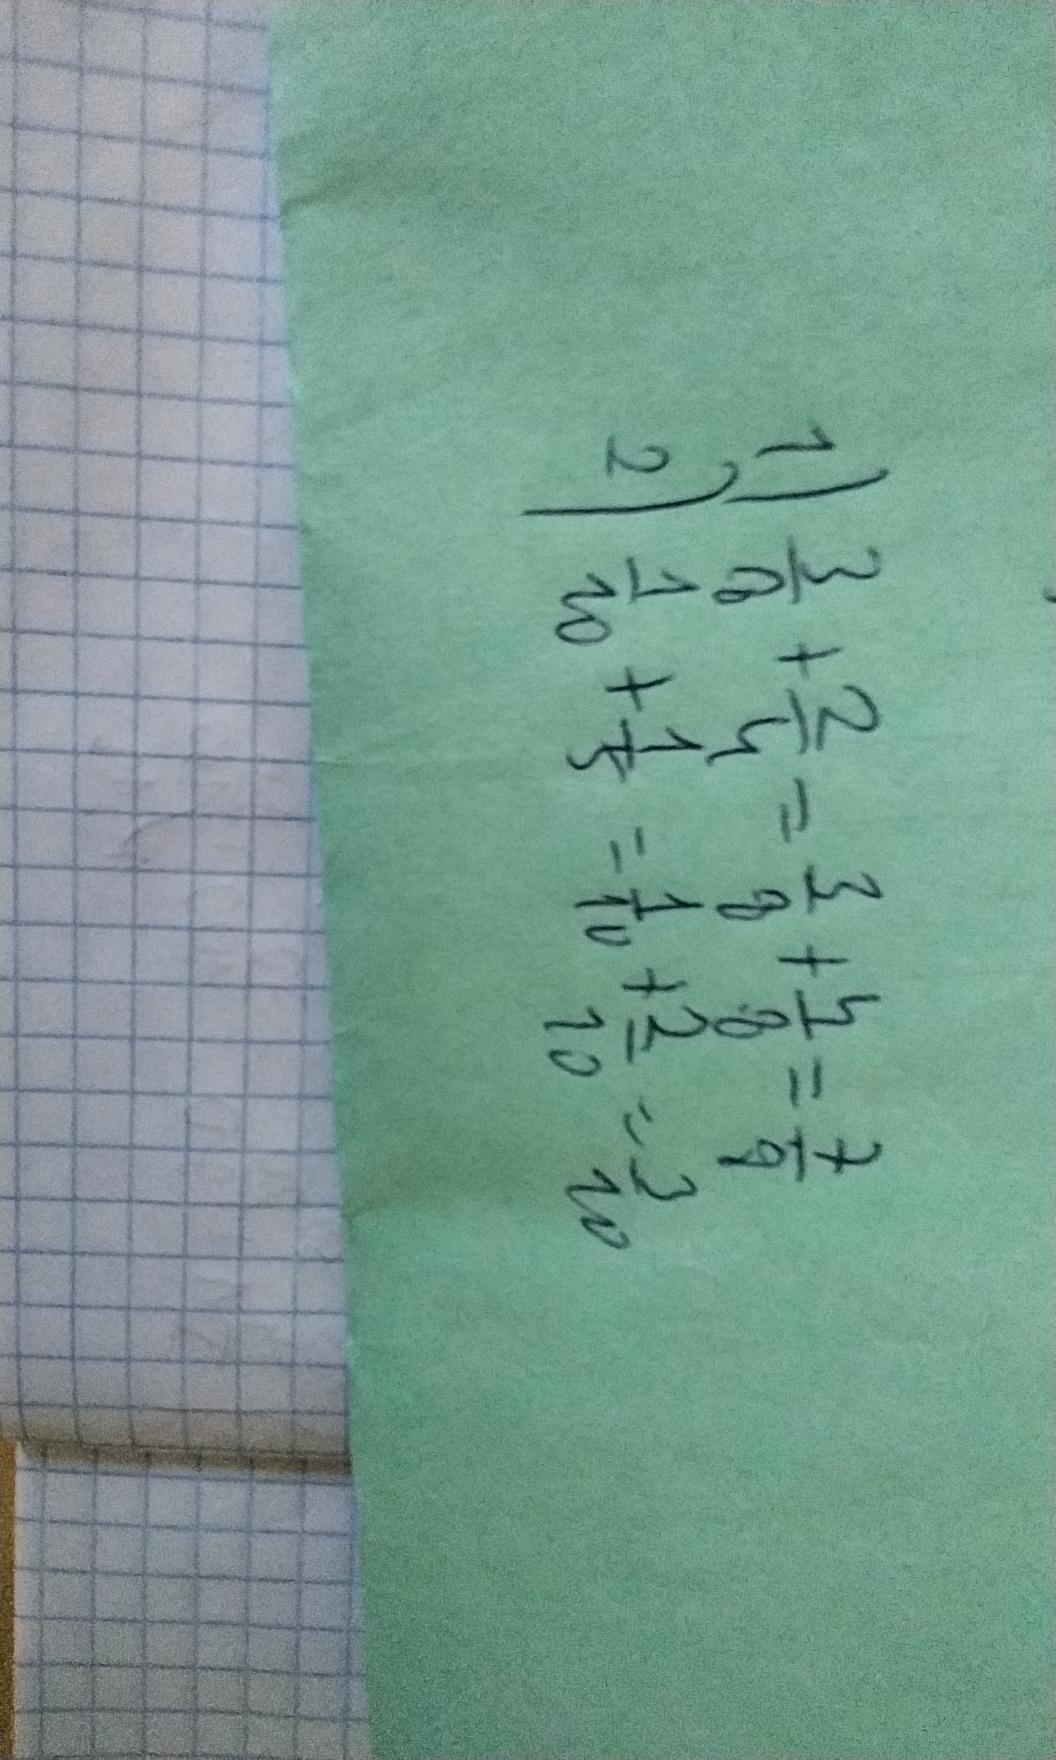 1) 3/8 + 2/4 = 3/8 + 4/8 = 7/8
2) 1/10 + 1/5 = 1/10 + 2/10 = 3/10